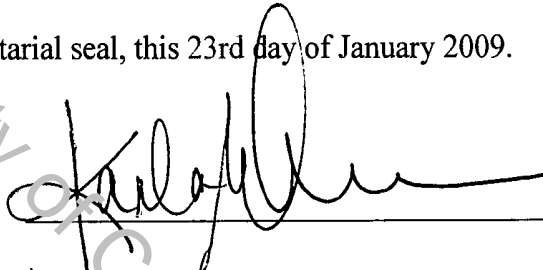 tarial seal, this 23rd day of January 2009.
y of C